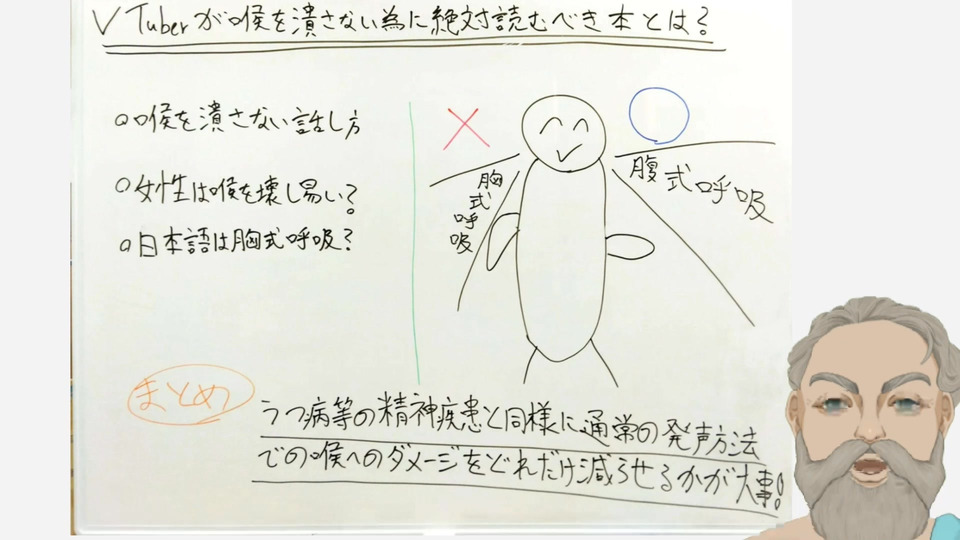 VTuberが喉を潰さない為に絶対読むべき本とは?
○喉を潰さない話し方
○女性は喉を壊し易い?
○日本語は胸式呼吸?
胸式呼吸
腹式呼吸
まとめ
うつ病等の精神疾患と同様に通常の発声方法
での喉へのダメージをどれだけ減らせるかが大事!